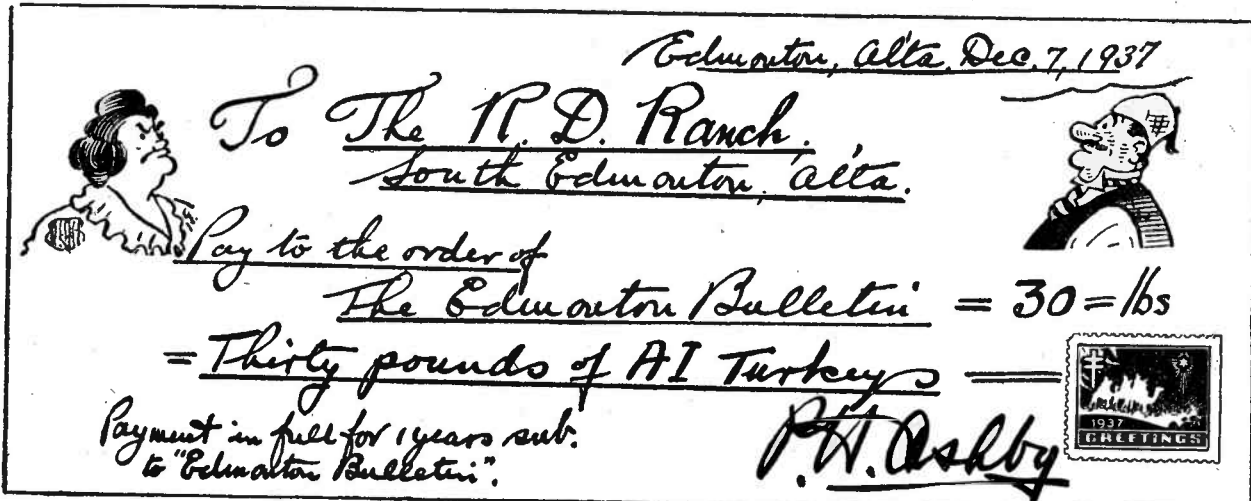 Edmonton, Alta, Dec. 7, 1937
To The R. D. Ranch.
South Edmonton, Alta.
Pay to the order of
The Edmonton Bulletin = 30 = lbs
= Thirty pounds of A1 Turkeys
Payment in full for 1 years sub.
to "Edmonton Bulletin".
P.W. Ashby
1937
GREETINGS